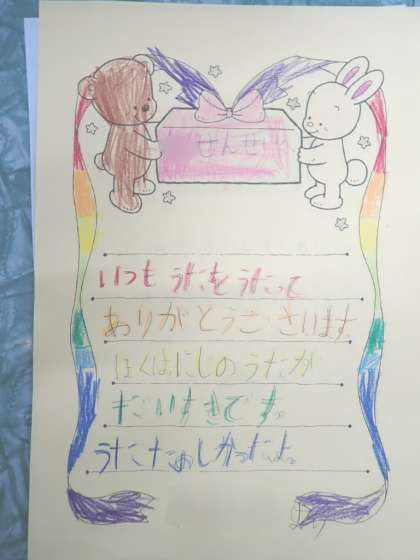 せんせい
いつも うたをうたって
ありがとうございます。
ぼくはにじのうたが
だいすきです。
うたたのしかったよ。